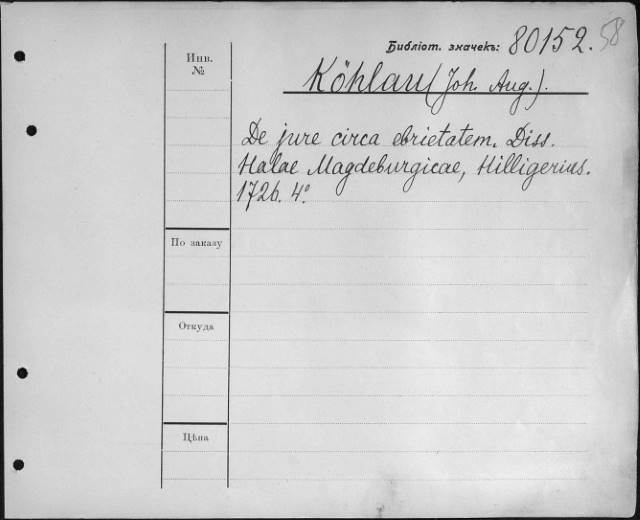 Библіот. значекъ: 80152. 58
Инв.
№
Köhlau (Joh. Aug.).
De jure circa ebrietatem. Diss.
Halae Magdeburgicae, Hilligerius.
1726. 4°.
По заказу
Откуда
Цѣна